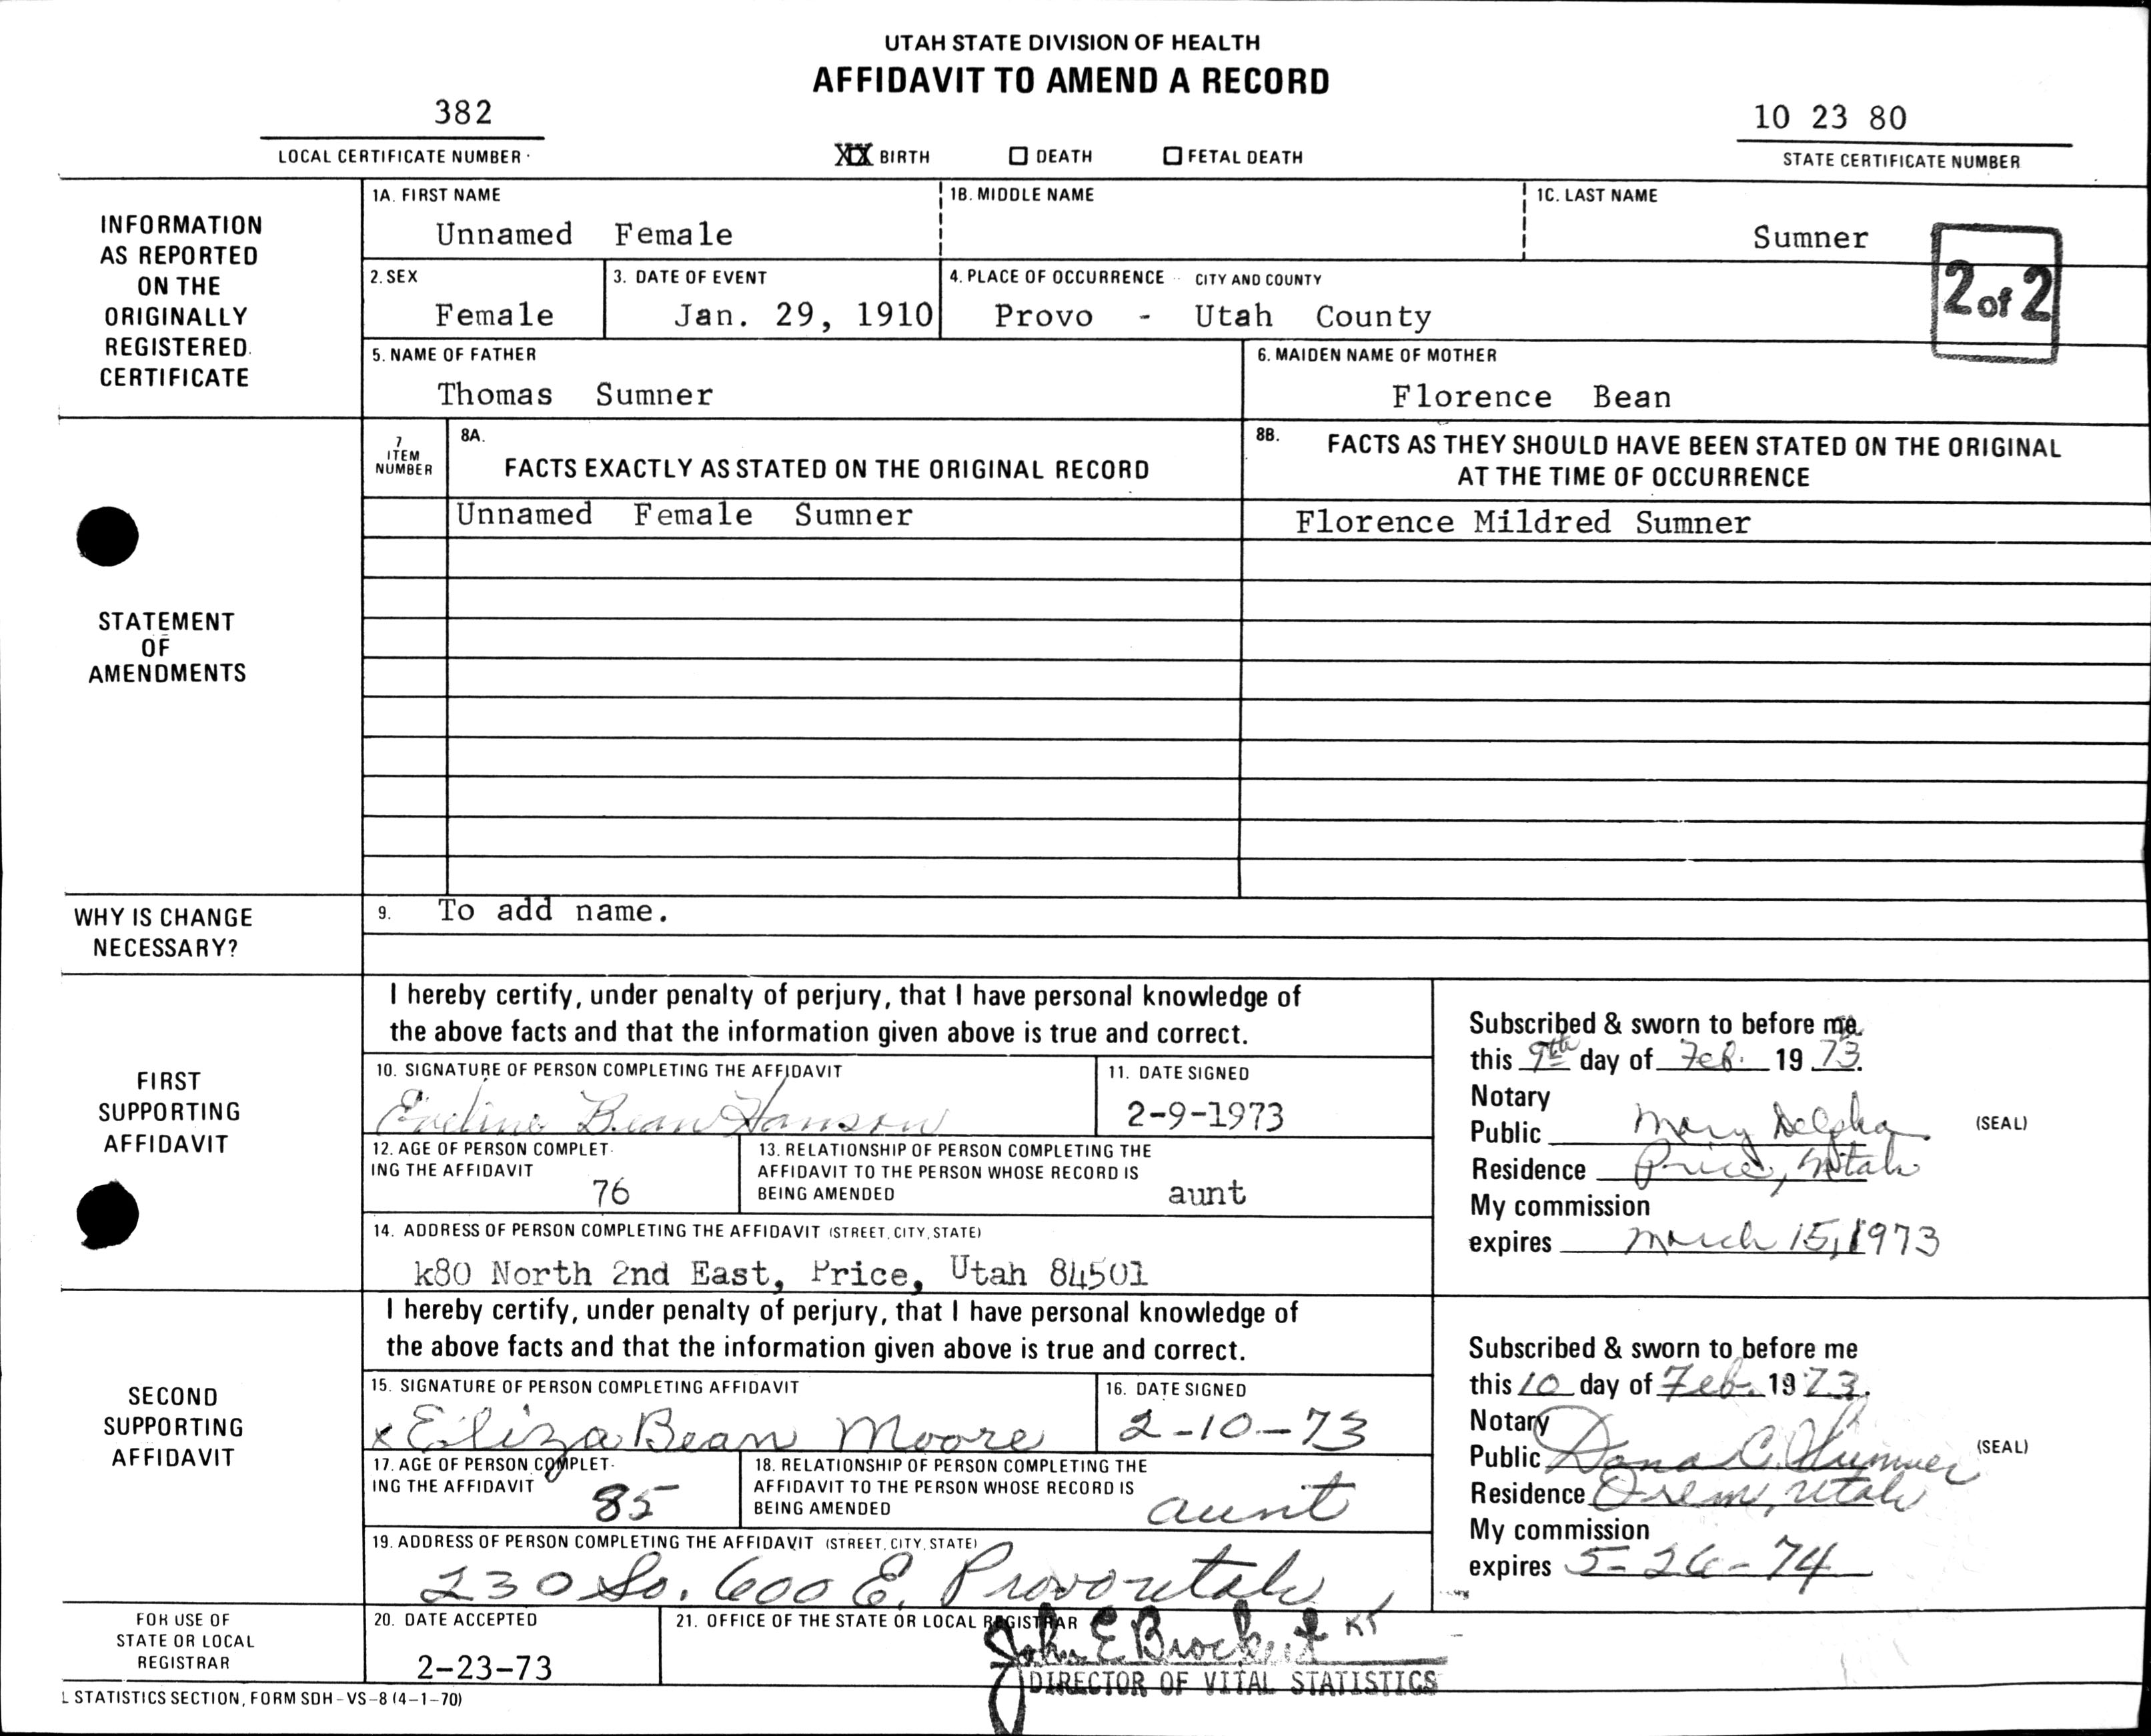 UTAH STATE DIVISION OF HEALTH
AFFIDAVIT TO AMEND A RECORD
382
LOCAL CERTIFICATE NUMBER
XX BIRTH DEATH FETAL DEATH
10 23 80
STATE CERTIFICATE NUMBER
INFORMATION
AS REPORTED
ON THE
ORIGINALLY
REGISTERED
CERTIFICATE
1A. FIRST NAME
Unnamed Female
1B. MIDDLE NAME
1C. LAST NAME
Sumner
2 of 2
2. SEX
Female
3. DATE OF EVENT
Jan. 29, 1910
4. PLACE OF OCCURRENCE CITY AND COUNTY
Provo - Utah County
5. NAME OF FATHER
Thomas Sumner
6. MAIDEN NAME OF MOTHER
Florence Bean
STATEMENT
OF
AMENDMENTS
7
ITEM
NUMBER
8A.
FACTS EXACTLY AS STATED ON THE ORIGINAL RECORD
8B. FACTS AS THEY SHOULD HAVE BEEN STATED ON THE ORIGINAL
AT THE TIME OF OCCURRENCE
Unnamed Female Sumner
Florence Mildred Sumner
WHY IS CHANGE
NECESSARY?
9. To add name.
FIRST
SUPPORTING
AFFIDAVIT
I hereby certify, under penalty of perjury, that I have personal knowledge of
the above facts and that the information given above is true and correct.
10. SIGNATURE OF PERSON COMPLETING THE AFFIDAVIT
Eveline Bean Hanson
11. DATE SIGNED
2-9-1973
12. AGE OF PERSON COMPLET-
ING THE AFFIDAVIT
76
13. RELATIONSHIP OF PERSON COMPLETING THE
AFFIDAVIT TO THE PERSON WHOSE RECORD IS
BEING AMENDED
aunt
14. ADDRESS OF PERSON COMPLETING THE AFFIDAVIT (STREET, CITY, STATE)
k80 North 2nd East, Price, Utah 84501
Subscribed & sworn to before me
this 9th day of Feb. 1973.
Notary
Public Mary
(SEAL)
Residence Price, Utah
My commission
expires March 15, 1973
SECOND
SUPPORTING
AFFIDAVIT
I hereby certify, under penalty of perjury, that I have personal knowledge of
the above facts and that the information given above is true and correct.
15. SIGNATURE OF PERSON COMPLETING AFFIDAVIT
x Eliza Bean Moore
16. DATE SIGNED
2-10-73
17. AGE OF PERSON COMPLET-
ING THE AFFIDAVIT
85
18. RELATIONSHIP OF PERSON COMPLETING THE
AFFIDAVIT TO THE PERSON WHOSE RECORD IS
BEING AMENDED
aunt
19. ADDRESS OF PERSON COMPLETING THE AFFIDAVIT (STREET, CITY, STATE)
230 So. 600 E. Provo Utah
Subscribed & sworn to before me
this 10 day of Feb. 1973.
Notary
Public Dona C.
(SEAL)
Residence Orem, Utah
My commission
expires 5-26-74
FOR USE OF
STATE OR LOCAL
REGISTRAR
20. DATE ACCEPTED
2-23-73
21. OFFICE OF THE STATE OR LOCAL REGISTRAR
John E Brockert KT
DIRECTOR OF VITAL STATISTICS
L STATISTICS SECTION, FORM SDH-VS-8 (4-1-70)